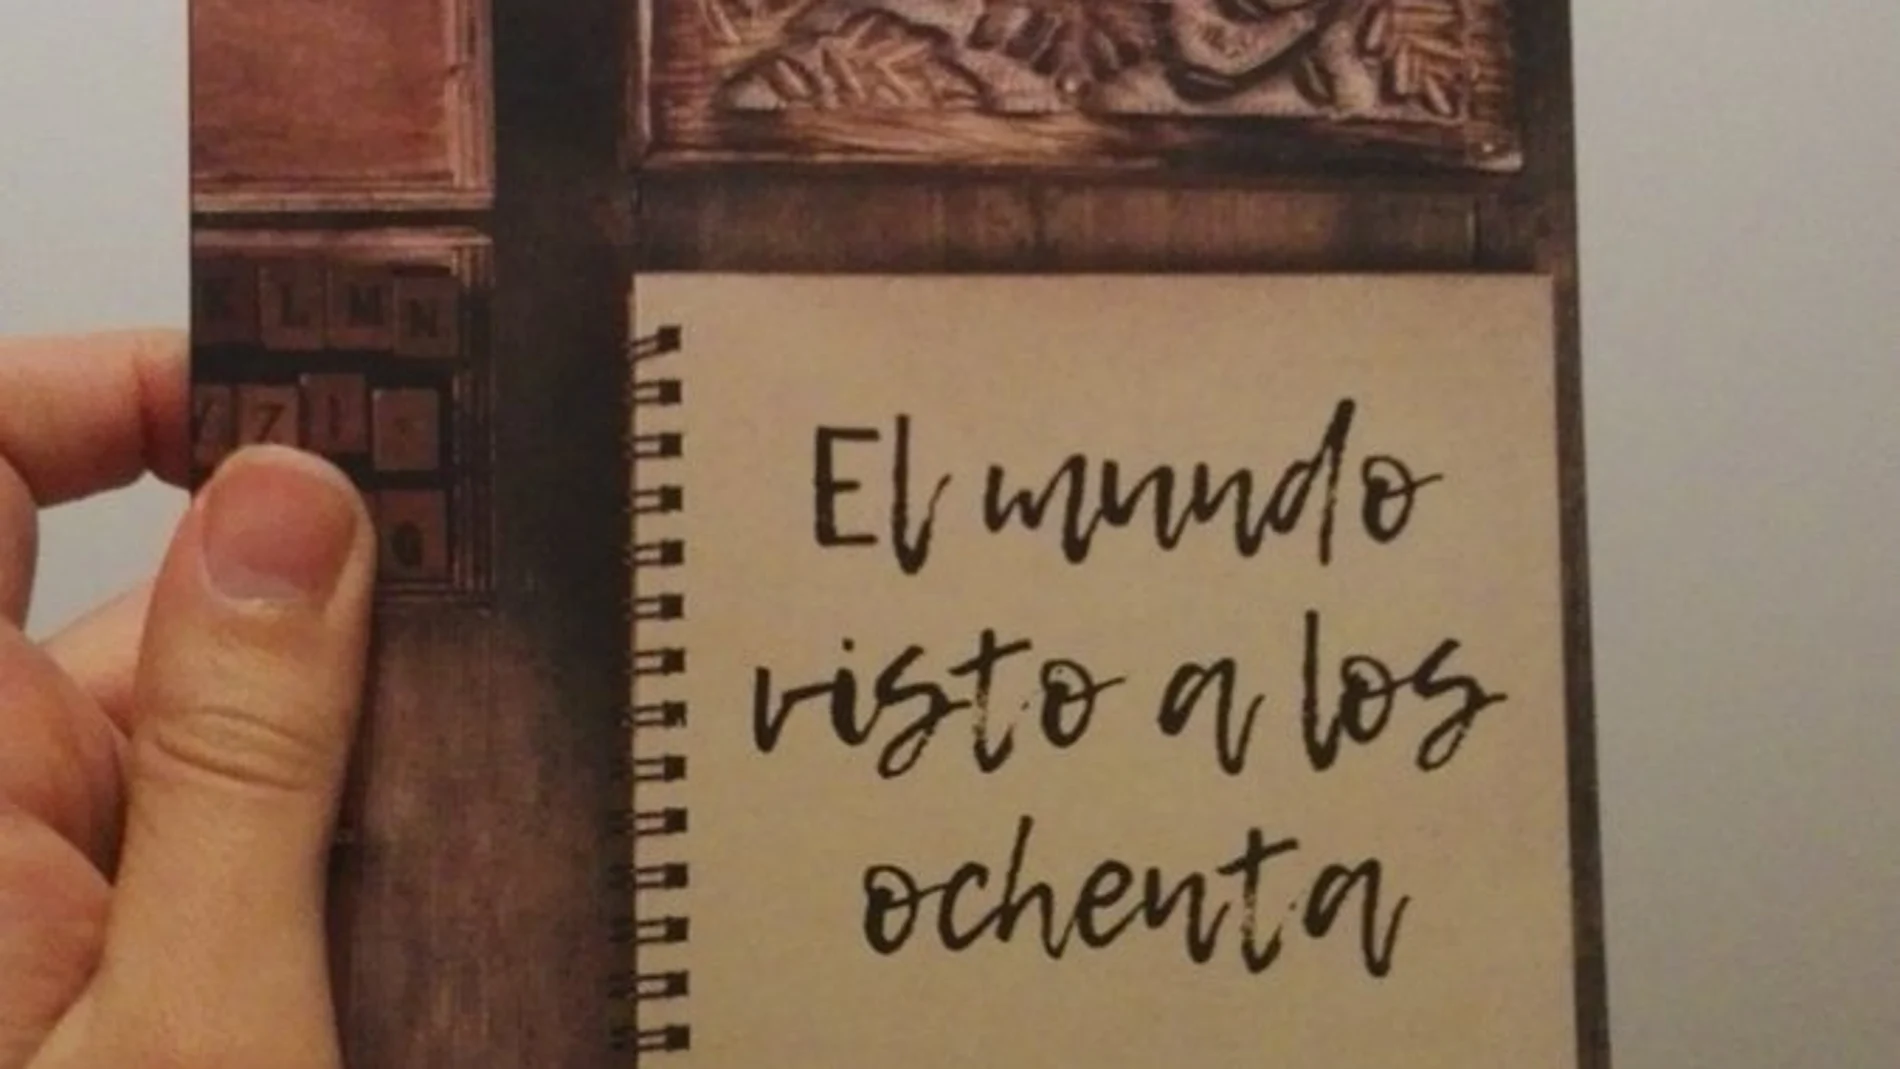 K L M N
El mundo
visto a los
ochenta